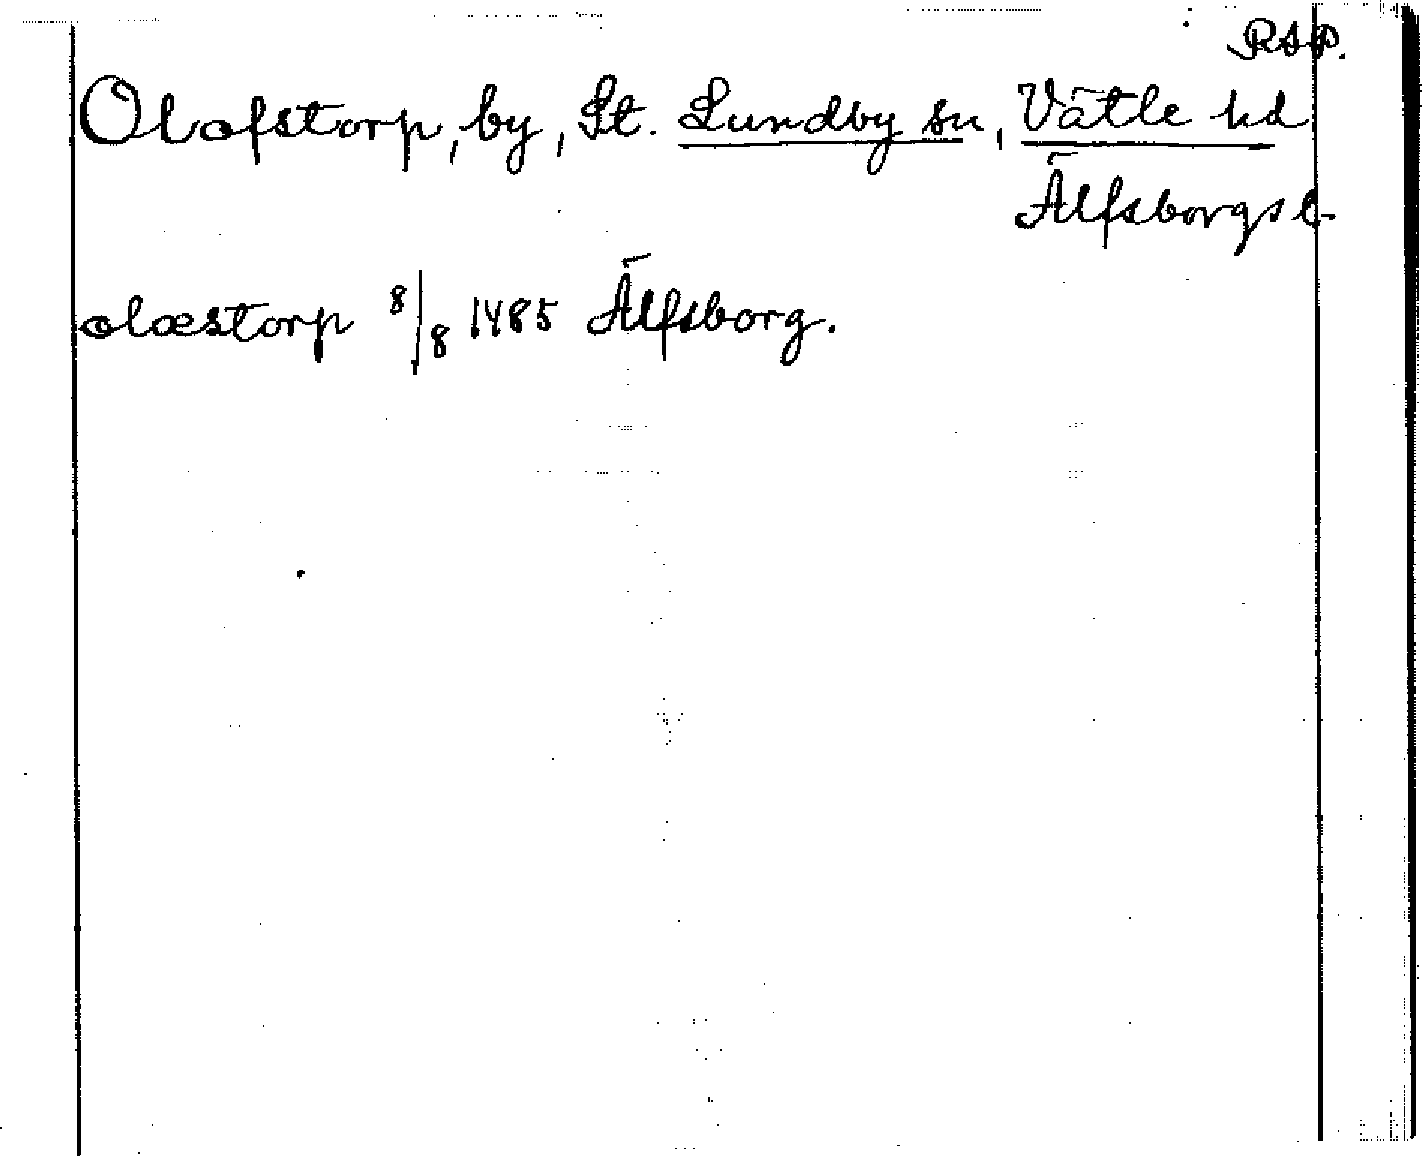 RAP.
Olofstorp, by, St. Lundby sn, Vätle hd
Älfsborgs l.
olæstorp 8/8 1485 Älfsborg.